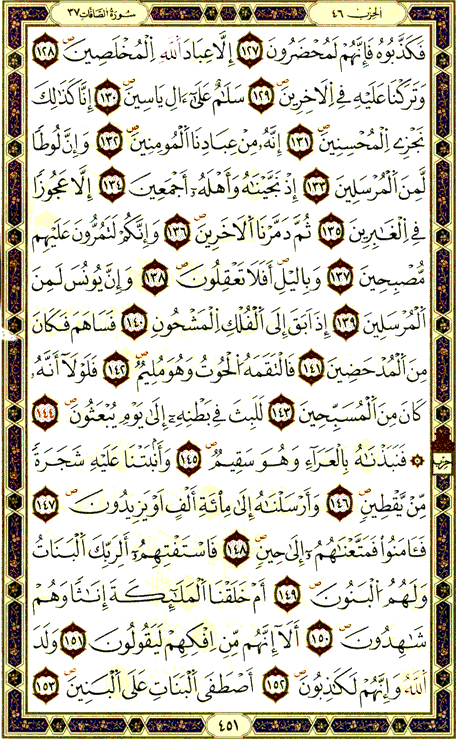 سُورَةُ الصَّافَّاتِ ٣٧
الحزب ٤٦
فَكَذَّبُوهُ فَإِنَّهُمْ لَمُحْضَرُونَ ١٢٧ إِلَّا عِبَادَ اَللَّهِ اِلْمُخْلَصِينَ ١٢٨
وَتَرَكْنَا عَلَيْهِ فِے اِلَاخِرِينَ ١٢٩ سَلَٰمٌ عَلَىٰٓ ءَالِ يَاسِينَ ١٣٠ إِنَّا كَذَٰلِكَ
نَجْزِے اِلْمُحْسِنِينَ ١٣١ إِنَّهُۥ مِنْ عِبَادِنَا اَلْمُومِنِينَ ١٣٢ وَإِنَّ لُوطًا
لَّمِنَ اَلْمُرْسَلِينَ ١٣٣ إِذْ نَجَّيْنَٰهُ وَأَهْلَهُۥٓ أَجْمَعِينَ ١٣٤ إِلَّا عَجُوزًا
فِے اِلْغَٰبِرِينَ ١٣٥ ثُمَّ دَمَّرْنَا اَلَاخَرِينَ ١٣٦ وَإِنَّكُمْ لَتَمُرُّونَ عَلَيْهِم
مُّصْبِحِينَ ١٣٧ وَبِالَيْلِ أَفَلَا تَعْقِلُونَ ١٣٨ وَإِنَّ يُونُسَ لَمِنَ
اَلْمُرْسَلِينَ ١٣٩ إِذَ اَبَقَ إِلَى اَلْفُلْكِ اِلْمَشْحُونِ ١٤٠ فَسَاهَمَ فَكَانَ
مِنَ اَلْمُدْحَضِينَ ١٤١ فَالْتَقَمَهُ اُلْحُوتُ وَهُوَ مُلِيمٌ ١٤٢ فَلَوْلَا أَنَّهُۥ
كَانَ مِنَ اَلْمُسَبِّحِينَ ١٤٣ لَلَبِثَ فِے بَطْنِهِۦٓ إِلَىٰ يَوْمِ يُبْعَثُونَ ١٤٤
۞ فَنَبَذْنَٰهُ بِالْعَرَآءِ وَهُوَ سَقِيمٌ ١٤٥ وَأَنۢبَتْنَا عَلَيْهِ شَجَرَةً
مِّنْ يَّقْطِينٍ ١٤٦ وَأَرْسَلْنَٰهُ إِلَىٰ مِاْئَةِ أَلْفٍ اَوْ يَزِيدُونَ ١٤٧
فَـَٔامَنُوا فَمَتَّعْنَٰهُمُۥٓ إِلَىٰ حِينٍ ١٤٨ فَاسْتَفْتِهِمُۥٓ أَلِرَبِّكَ اَلْبَنَاتُ
وَلَهُمُ اُلْبَنُونَ ١٤٩ أَمْ خَلَقْنَا اَلْمَلَٰٓئِكَةَ إِنَٰثًا وَهُمْ
شَٰهِدُونَ ١٥٠ أَلَآ إِنَّهُم مِّنِ اِفْكِهِمْ لَيَقُولُونَ ١٥١ وَلَدَ
اَللَّهُ وَإِنَّهُمْ لَكَٰذِبُونَ ١٥٢ أَصْطَفَى اَلْبَنَاتِ عَلَى اَلْبَنِينَ ١٥٣
٤٥١